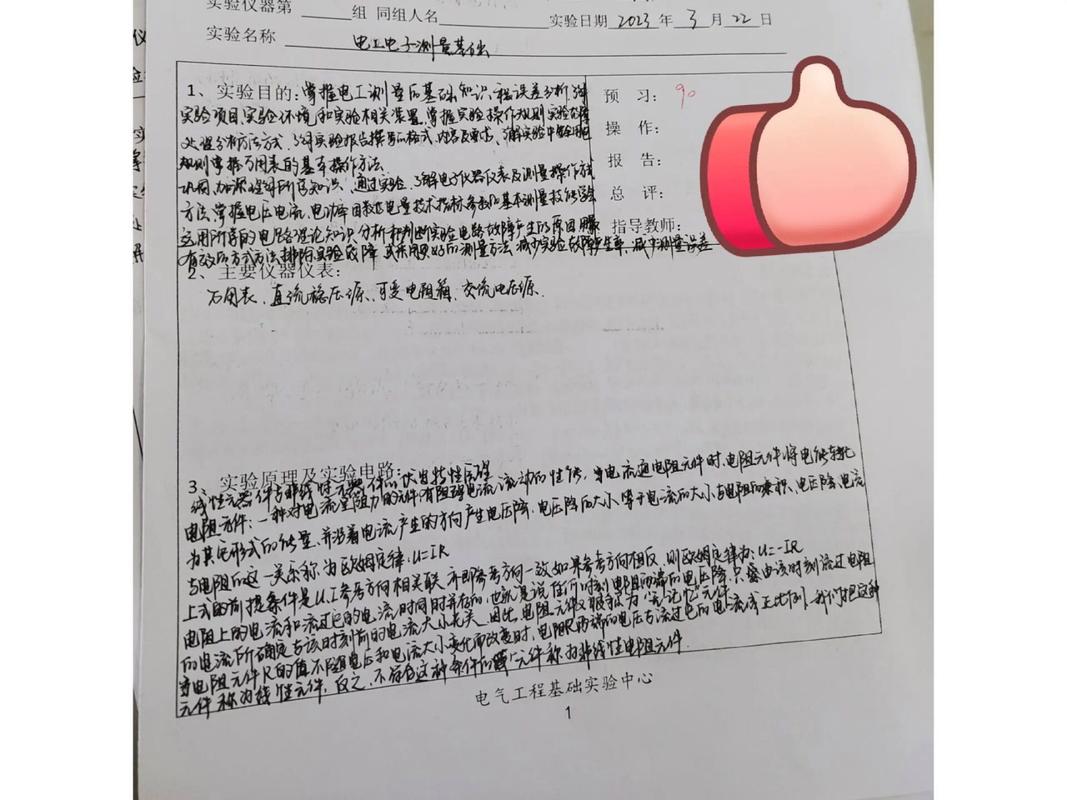 实验仪器第 组 同组人名 实验日期 2023 年 3 月 22 日
实验名称 电工电子测量基础
1、实验目的: 掌握电工测量的基础知识、和误差分析,
实验项目实验环境,和实验相关装置,掌握实验操作规则实验
处理分析方法方式、学习实验报告撰写的格式、内容及要求、了解实验中
规则掌握万用表的基本操作方法.
巩固、加深理解所学知识、通过实验、了解电子仪器仪表及测量操作
方法、掌握电压电流、电功率因数电量技术指标参数和基本测量技能
运用所学的电路理论知识分析和判断实验电路故障产生的原因
有效的方式方法排除实验故障 或采用更好的测量方法 减少实验故障产生率、减少测量误差
预 习: 90
操 作:
报 告:
总 评:
指导教师:
2、主要仪器仪表:
万用表、直流稳压源、可变电阻箱、交流电压源.
3、实验原理及实验电路:
线性元器件与非线性元器件的伏安特性原理
电阻元件: 一种对电流呈阻力的元件,有阻碍电流流动的性能, 当电流通电阻元件时、电阻元件将电能转化
为其它形式的能量、并沿着电流产生的方向产生电压降、电压降的大小等于电流的大小与电阻的乘积、电压降、电流
与电阻的这一关系称为欧姆定律:U=IR
上式的前提条件是U、I参考方向相关联、亦即参考方向一致如果参考方向相反、则欧姆定律为:U=-IR
电阻上的电流和流过它的电流,时同时并存的,也就是说任何时刻电阻两端的电压降、只由该时刻流过电阻
的电流所确定与该时刻前的电流大小无关、因此,电阻元件又被称为"无记忆"元件
当电阻元件R的值不随电压和电流大小变化而改变时、电阻R两端的电压与流过它的电流成正比例,我们把这种
元件称为线性元件、反之、不符合这种条件的元件称为非线性电阻元件.
电气工程基础实验中心
1